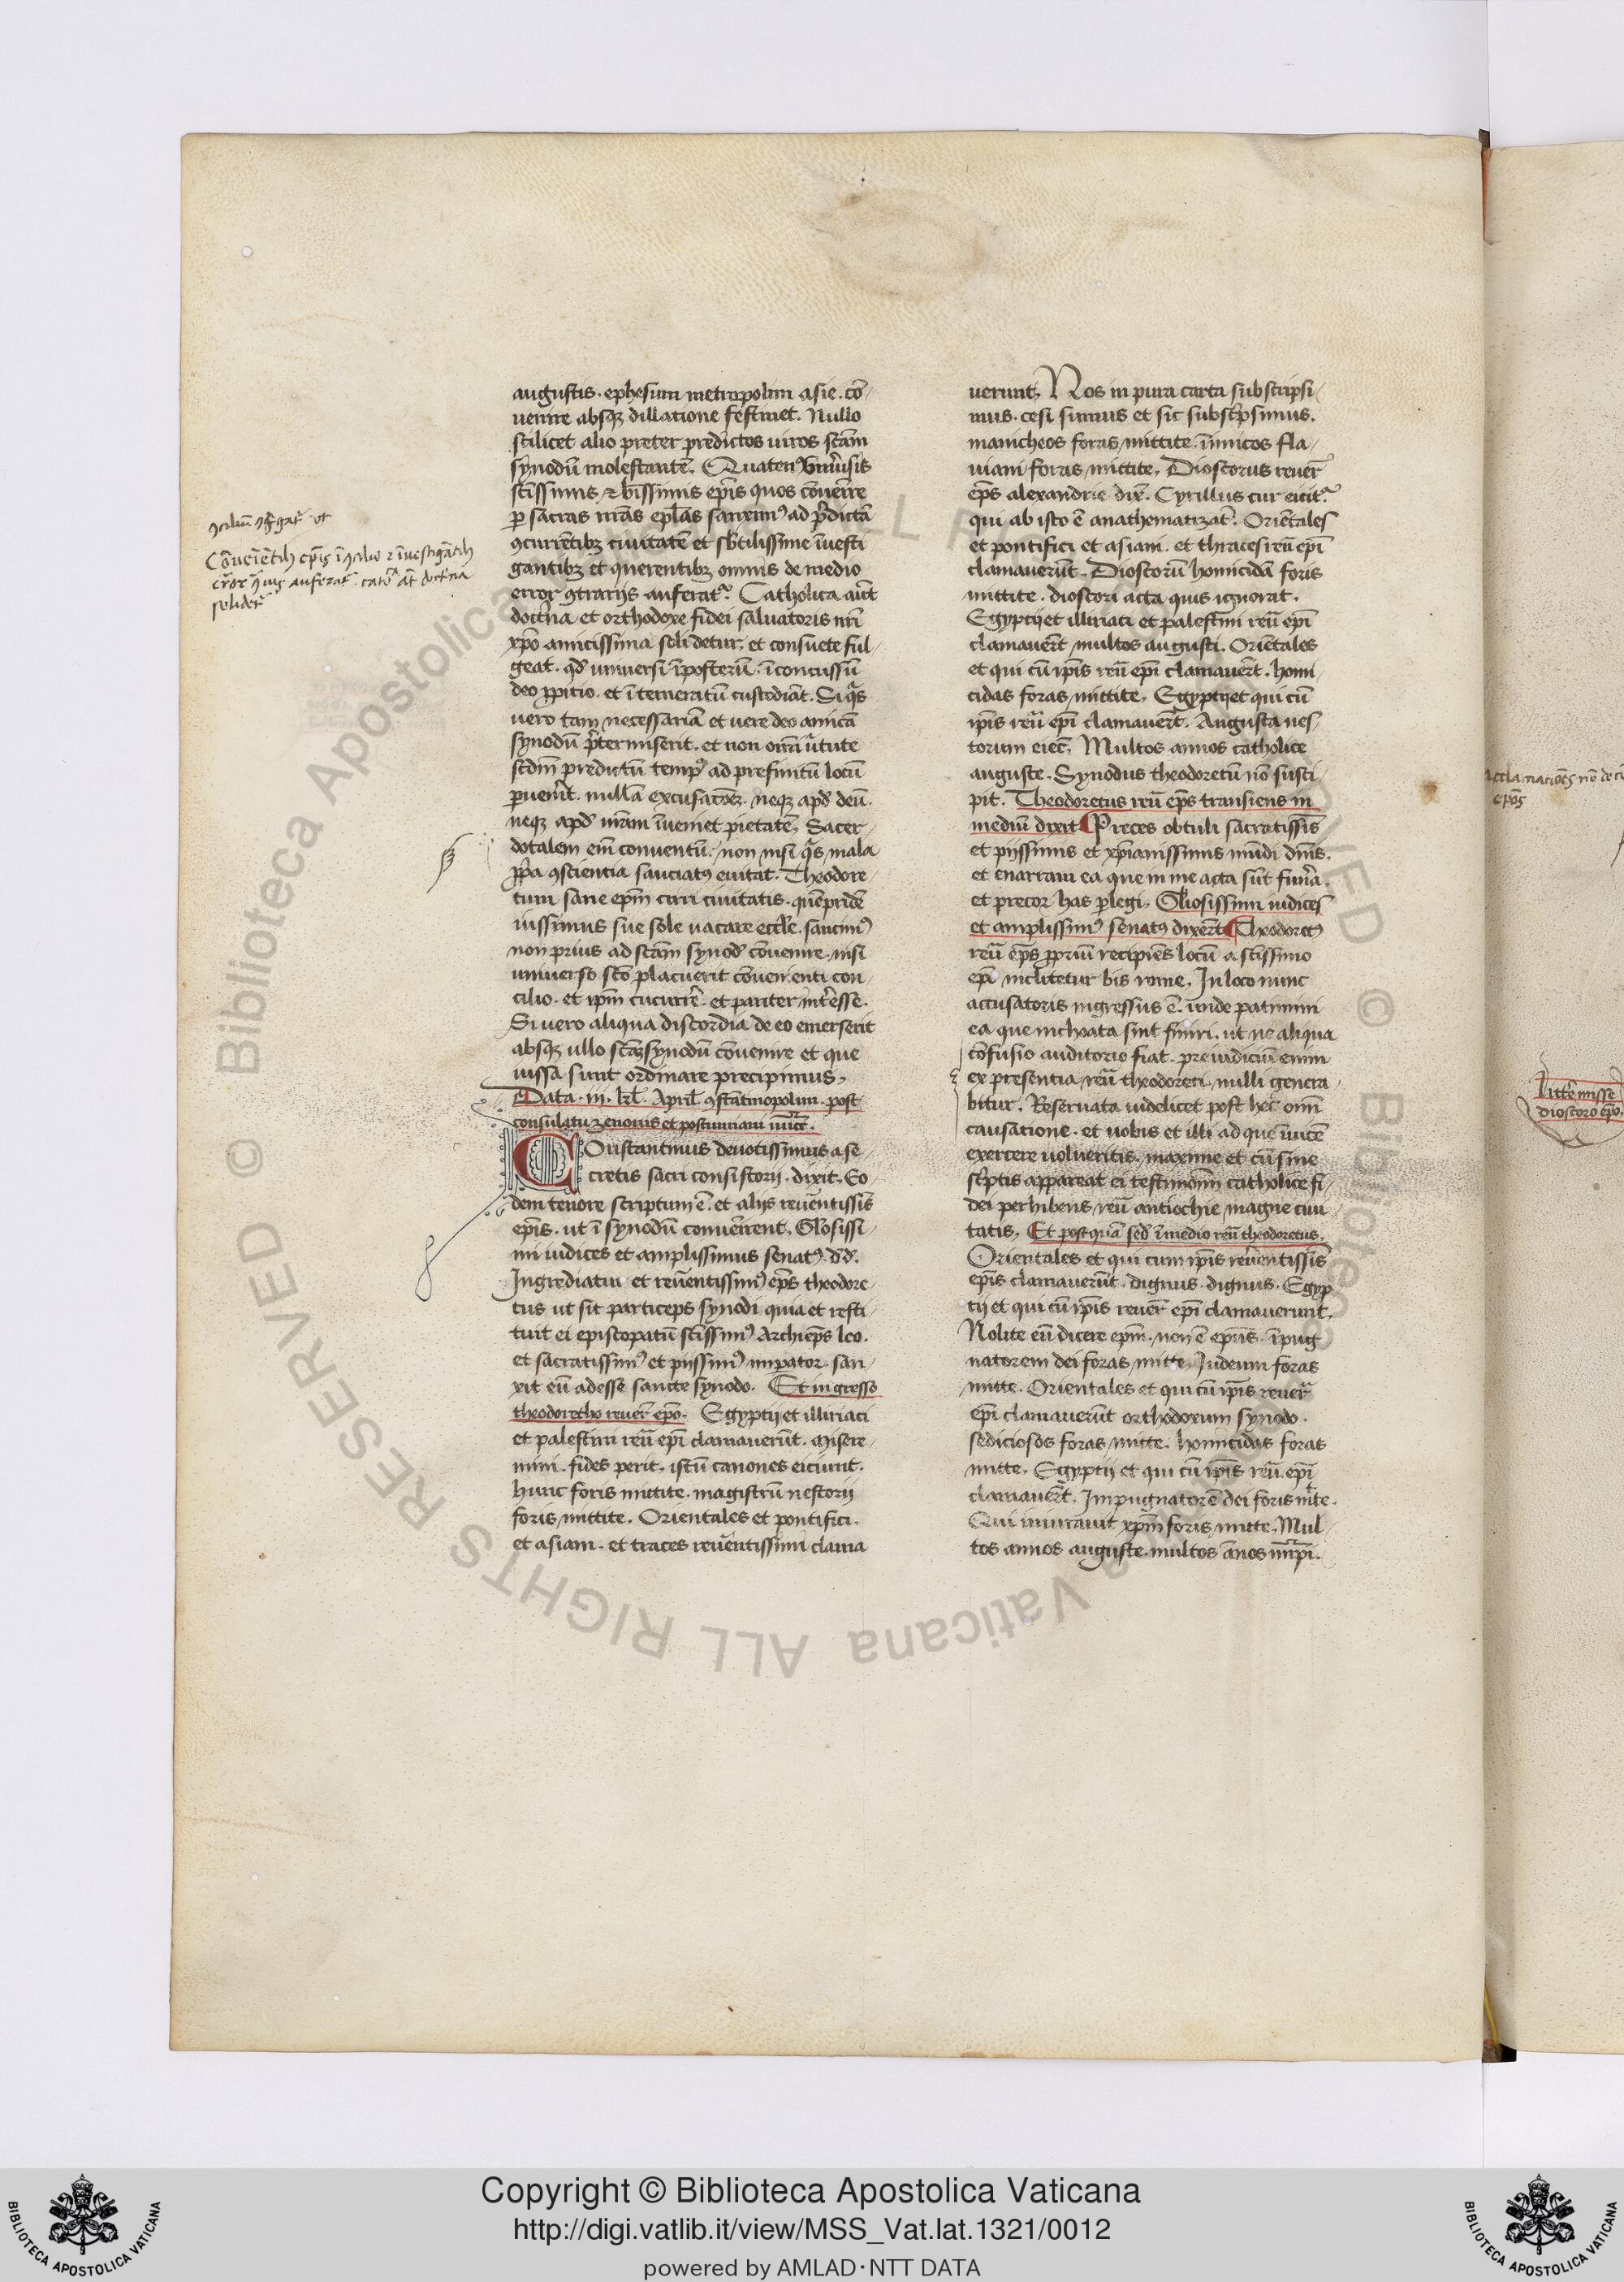 augustis. ephesum metropolim asie. cō-
uenire absqꝫ dillatione festinet. Nullo
scilicet alio preter predictos uiros scām
synodū molestante. Quatenꝰ vniūsis
sc̄issimis ⁊ b̄issimis ep̄is quos cōuenire
ꝑ sacras nr̄as ep̄las sanximꝰ ad p̄dictā
ꝯcurētibꝫ ciuitatē et sb̄tilissime īuesti
gantibꝫ et querentibꝫ omnis de medio
error ꝯtrarijs auferat᷑. Catholica aūt
doct̄na et orthodoxe fidei saluatoris nr̄i
xp̄o amicissima soli detur, et consuete ful-
geat. qd̄ uniuersi īposterū. īconcussū
deo ꝓpitio. et ītemeratū custodiāt. Si qͥs
uero tam necessariā et uere deo amicā
synodū p̄termiserit. et non om̄i ūtute
scdm̄ predictū tempꝰ ad prefinitū locū
ꝑuenīt. nullā excusacōeꝫ. neqꝫ apd̄ deū.
neqꝫ apd̄ nr̄am īueniet pietatē. Sacer-
dotalem eīm conuentū. non nisi qͥs mala
ꝓpͥa ꝯscientia sauciatꝰ euitat. Theodore-
tum sane ep̄m cirri ciuitatis. quē pridē
iussimus sue sole uacare eccl̄e. sancimꝰ
non prius ad scām synod̄ cōuenire. nisi
uniuerso sc̄o placuerit cōuenienti con-
cilio. et ip̄m cucurīre. et pariter int̄esse.
Si uero aliqua discordia de eo emerserit
absqꝫ ullo scāꝫ synodū cōuenire et que
iussa sunt ordinare precipimus.
Data. iii. kl̄. April̄. ꝯstātinopolim. post
consulatu zenonis et postumiani
COnstantinus deuotissimus a se-
cretis sacri consistorij. dixit. Eo-
dem tenore scriptum ē. et alijs reūentissis̄
ep̄is. ut ī synodū conuenirent. Glōsissi-
mi iudices et amplissimus senatꝰ. d.d.
Ingrediatur et reūentissimꝰ ep̄s theodore-
tus ut sit particeps synodi quia et resti-
tuit ei episcopatū sc̄issimꝰ Archiep̄s leo.
et sacratissimꝰ et pijssimꝰ impator. san-
xit eū adesse sancte synodo. Et ingresso
theodoretho reuer̄ ep̄o. Egyptij et illiriaci
et palestini reū ep̄i clamauerūt. Misere-
mini. fides perit. istū canones eiciunt.
hunc foris mittite. magistrū nestorij
foris mittite. Orientales et pontifici.
et asiani. et traces reūentissimi clama
uerunt. Nos in pura carta subscripsi-
mus. cesi sumus et sic subsc̄psimus.
manicheos foras mittite. īimicos fla-
uiani foras mittite. Dioscorus reuer̄
ep̄s alexandrie dix̄. Cyrillus cur eicit᷑
qui ab isto ē anathematizat᷑. Oriētales
et pontifici et asiani. et thraces reū ep̄i
clamauerūt. Dioscorū homicidā foris
mittite. dioscori acta quis ignorat.
Egyptij et illiriaci et palestini reū ep̄i
clamauer̄t multos augusti. Oriētales
et qui cū ip̄is reū ep̄i clamauer̄t. homi-
cidas foras mittite. Egyptij et qui cū
ip̄is reū ep̄i clamauer̄t. Augusta nes-
torium eiec̄. Multos annos catholice
auguste. Synodus theodoretū nō susci-
pit. Theodoretus reū ep̄s transiens in
mediū dixit Preces obtuli sacratissīs
et pijssimis et xp̄ianissimis mūdi dn̄is.
et enarraui ea que in me acta sūt
et precor has ꝑlegi. Gl̄iosissimi iudices
et amplissimꝰ senatꝰ dixer̄t Theodoretꝰ
reū ep̄s ꝓpriū recipiēs locū a sc̄issimo
ep̄o inclitetur bis rome. In loco nunc
accusatoris ingressus ē. unde patimini
ea que inchoata sint finiri. ut ne aliqua
cōfusio auditorio fiat. preiudiciū enim
ex presentia reū theodoreti nulli genera-
bitur. Reseruata uidelicet post hec om̄i
causatione. et uobis et illi ad quē inuicē
exercere uolueritis. maxime et cū sine
sc̄ptis appareat ei testimōiū catholice fi-
dei perhibens reū antiochie magne ciui
tatis. Et postquā sed̄ ī medio reū theodoretus.
Orientales et qui cum ip̄is reūentissis̄
ep̄is clamauerūt. dignus. dignus. Egyp
tij et qui cū ip̄is reuer̄ ep̄i clamauerunt.
Nolite eū dicere ep̄m. non ē ep̄us. īpug
natorem dei foras mitte. Iudeum foras
mitte. Orientales et qui cū ip̄is reuer̄
ep̄i clamauerūt orthodoxum synodo.
sediciosos foras mitte. homicidas foras
mitte. Egyptij et qui cū ip̄is reū ep̄i
clamauer̄t. Impugnatorē dei foris mͥte.
Qui iniurauit xp̄m foris mitte. Mul-
tos annos auguste. multos ānos
ꝯciliū ꝯgͤgat᷑ ut
error ꝯ auferat᷑. doct̄na
solidet᷑
Litt̄e misse
dioscoro ep̄o.
© Biblioteca Apostolica Vaticana ALL RIGHTS RESERVED
Copyright © Biblioteca Apostolica Vaticana
http://digi.vatlib.it/view/MSS_Vat.lat.1321/0012
powered by AMLAD·NTT DATA
BIBLIOTECA APOSTOLICA VATICANA
BIBLIOTECA APOSTOLICA VATICANA